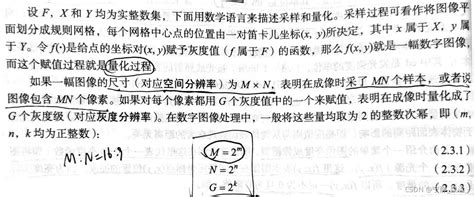 设 F、X 和 Y 均为实整数集，下面用数学语言来描述采样和量化。采样过程可看作将图像平
面划分成规则网格，每个网格中心点的位置由一对笛卡儿坐标(x, y)所决定，其中 x 属于 X，y 属
于 Y。令 f(·)是给点的坐标对(x, y)赋予灰度值 (f 属于 F) 的函数，那么 f(x, y)就是一幅数字图像，
而这个赋值过程就是量化过程。
如果一幅图像的尺寸（对应空间分辨率）为 M × N，表明在成像时采了 MN 个样本，或者说
图像包含 MN 个像素。如果对每个像素都用 G 个灰度值中的一个来赋值，表明在成像时量化成了
G 个灰度级（对应灰度分辨率）。在数字图像处理中，一般将这些量均取为 2 的整数次幂，即 (m,
n, k 均为正整数)：
M:N=16:9
M = 2^m (2.3.1)
N = 2^n (2.3.2)
G = 2^k (2.3.3)